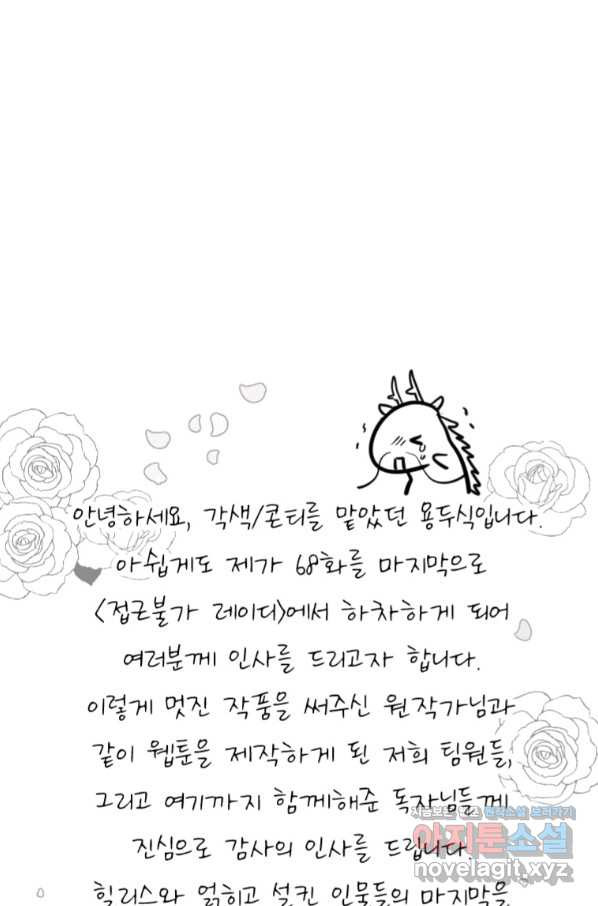 안녕하세요, 각색/콘티를 맡았던 용두식입니다.
아쉽게도 제가 68화를 마지막으로
<접근불가 레이디>에서 하차하게 되어
여러분께 인사를 드리고자 합니다.
이렇게 멋진 작품을 써주신 원작가님과
같이 웹툰을 제작하게 된 저희 팀원들,
그리고 여기까지 함께해준 독자님들께
진심으로 감사의 인사를 드립니다.
힐리스와 얽히고 설킨 인물들의 마지막을
아지툰소설
novelagit.xyz